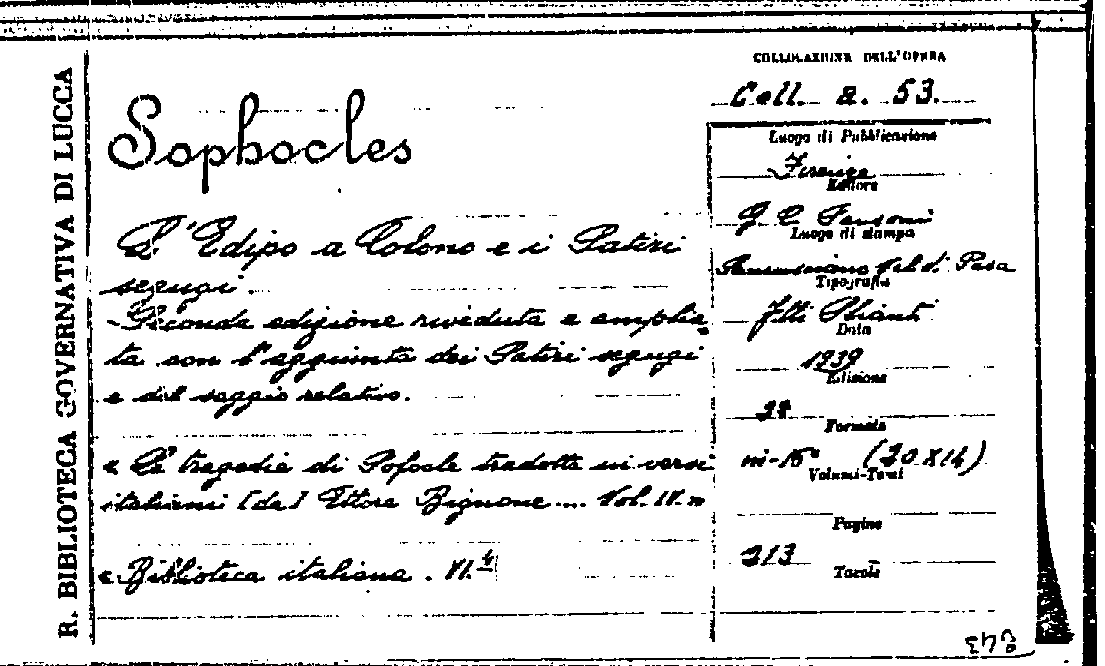 R. BIBLIOTECA GOVERNATIVA DI LUCCA
Sophocles
L'Edipo a Colono e i Satiri
segugi.
- Seconda edizione riveduta e amplia-
ta con l'aggiunta dei Satiri segugi
e del saggio relativo.
« Le tragedie di Sofocle tradotte in versi
italiani [da] Ettore Bignone.... Vol. IV. »
« Biblioteca italiana. VI.4
COLLOCAZIONE DELL'OPERA
Coll. a. 53.
Luogo di Pubblicazione
Firenze
Editore
G. C. Sansoni
Luogo di stampa
Val di Pesa
Tipografia
F.lli Stianti
Data
1939
Edizione
2ª
Formato
in-16° (20 X 14)
Volumi-Tomi
Pagine
213
Tavole